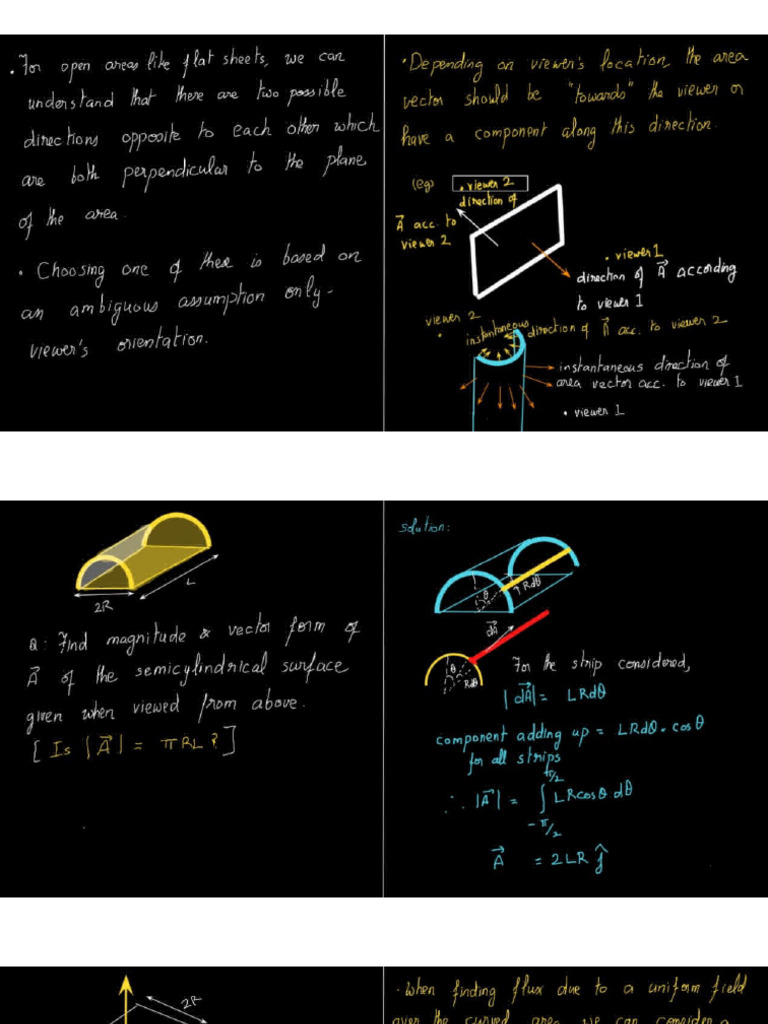 • For open areas like flat sheets, we can
understand that there are two possible
directions opposite to each other which
are both perpendicular to the plane
of the area.
• Choosing one of these is based on
an ambiguous assumption only-
viewer's orientation.
• Depending on viewer's location, the area
vector should be "towards" the viewer or
have a component along this direction.
(eg)
• viewer 2
direction of
A⃗ acc. to
viewer 2
• viewer 1
direction of A⃗ according
to viewer 1
viewer 2
instantaneous
direction of A⃗ acc. to viewer 2
instantaneous direction of
area vector acc. to viewer 1
• viewer 1
2R
L
Q: Find magnitude & vector form of
A⃗ of the semicylindrical surface
given when viewed from above.
[Is |A⃗| = πRL?]
Solution:
θ
Rdθ
dA⃗
θ
Rdθ
For the strip considered,
|dA⃗| = LRdθ
component adding up = LRdθ·cosθ
for all strips
∴ |A⃗| = ∫ LRcosθ dθ
π/2
-π/2
A⃗ = 2LR ĵ
2R
• When finding flux due to a uniform field
over the curved area, we can consider a